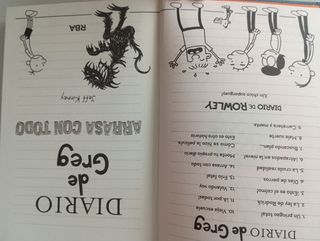 DIARIO
de Greg
1. Un pringao total
2. La ley de Rodrick
3. ¡Esto es el colmo!
4. Días de perros
5. La cruda realidad
6. ¡Atrapados en la nieve!
7. Buscando plan...
8. Mala suerte
9. Carretera y manta
10. Vieja escuela
11. ¡A por todas!
12. Volando voy
13. Frío fatal
14. Arrasa con todo
Monta tu propio diario
Cómo se hizo la película
Esto es otra historia
DIARIO DE ROWLEY
¡Un chico superguay!
DIARIO
de
Greg
ARRASA CON TODO
Jeff Kinney
RBA